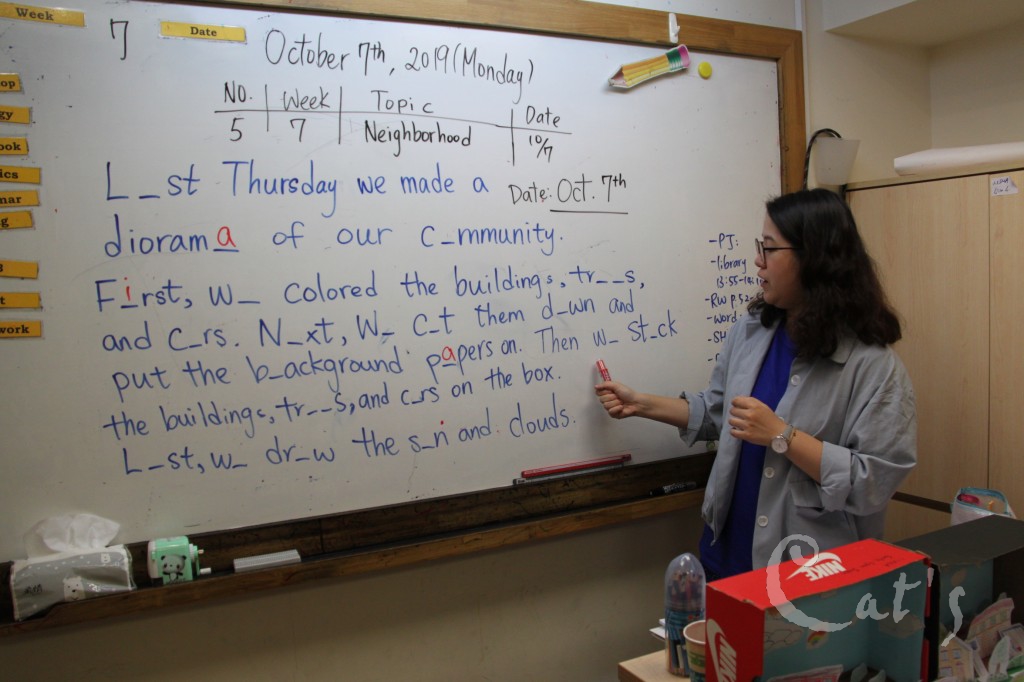 Week
7
Date
October 7th, 2019 (Monday)
No. Week Topic Date
5 7 Neighborhood 10/7
L_st Thursday we made a
Date: Oct. 7th
diorama of our c_mmunity.
First, w_ colored the buildings, tr__s,
and c_rs. N_xt, w_ c_t them d_wn and
put the b_ackground papers on. Then w_ st_ck
the buildings, tr__s, and c_rs on the box.
L_st, w_ dr_w the s_n and clouds.
-PJ:
-library
-RW p.52
-word:
-SH
ook
ics
work
NIKE
NIKE
Cat's